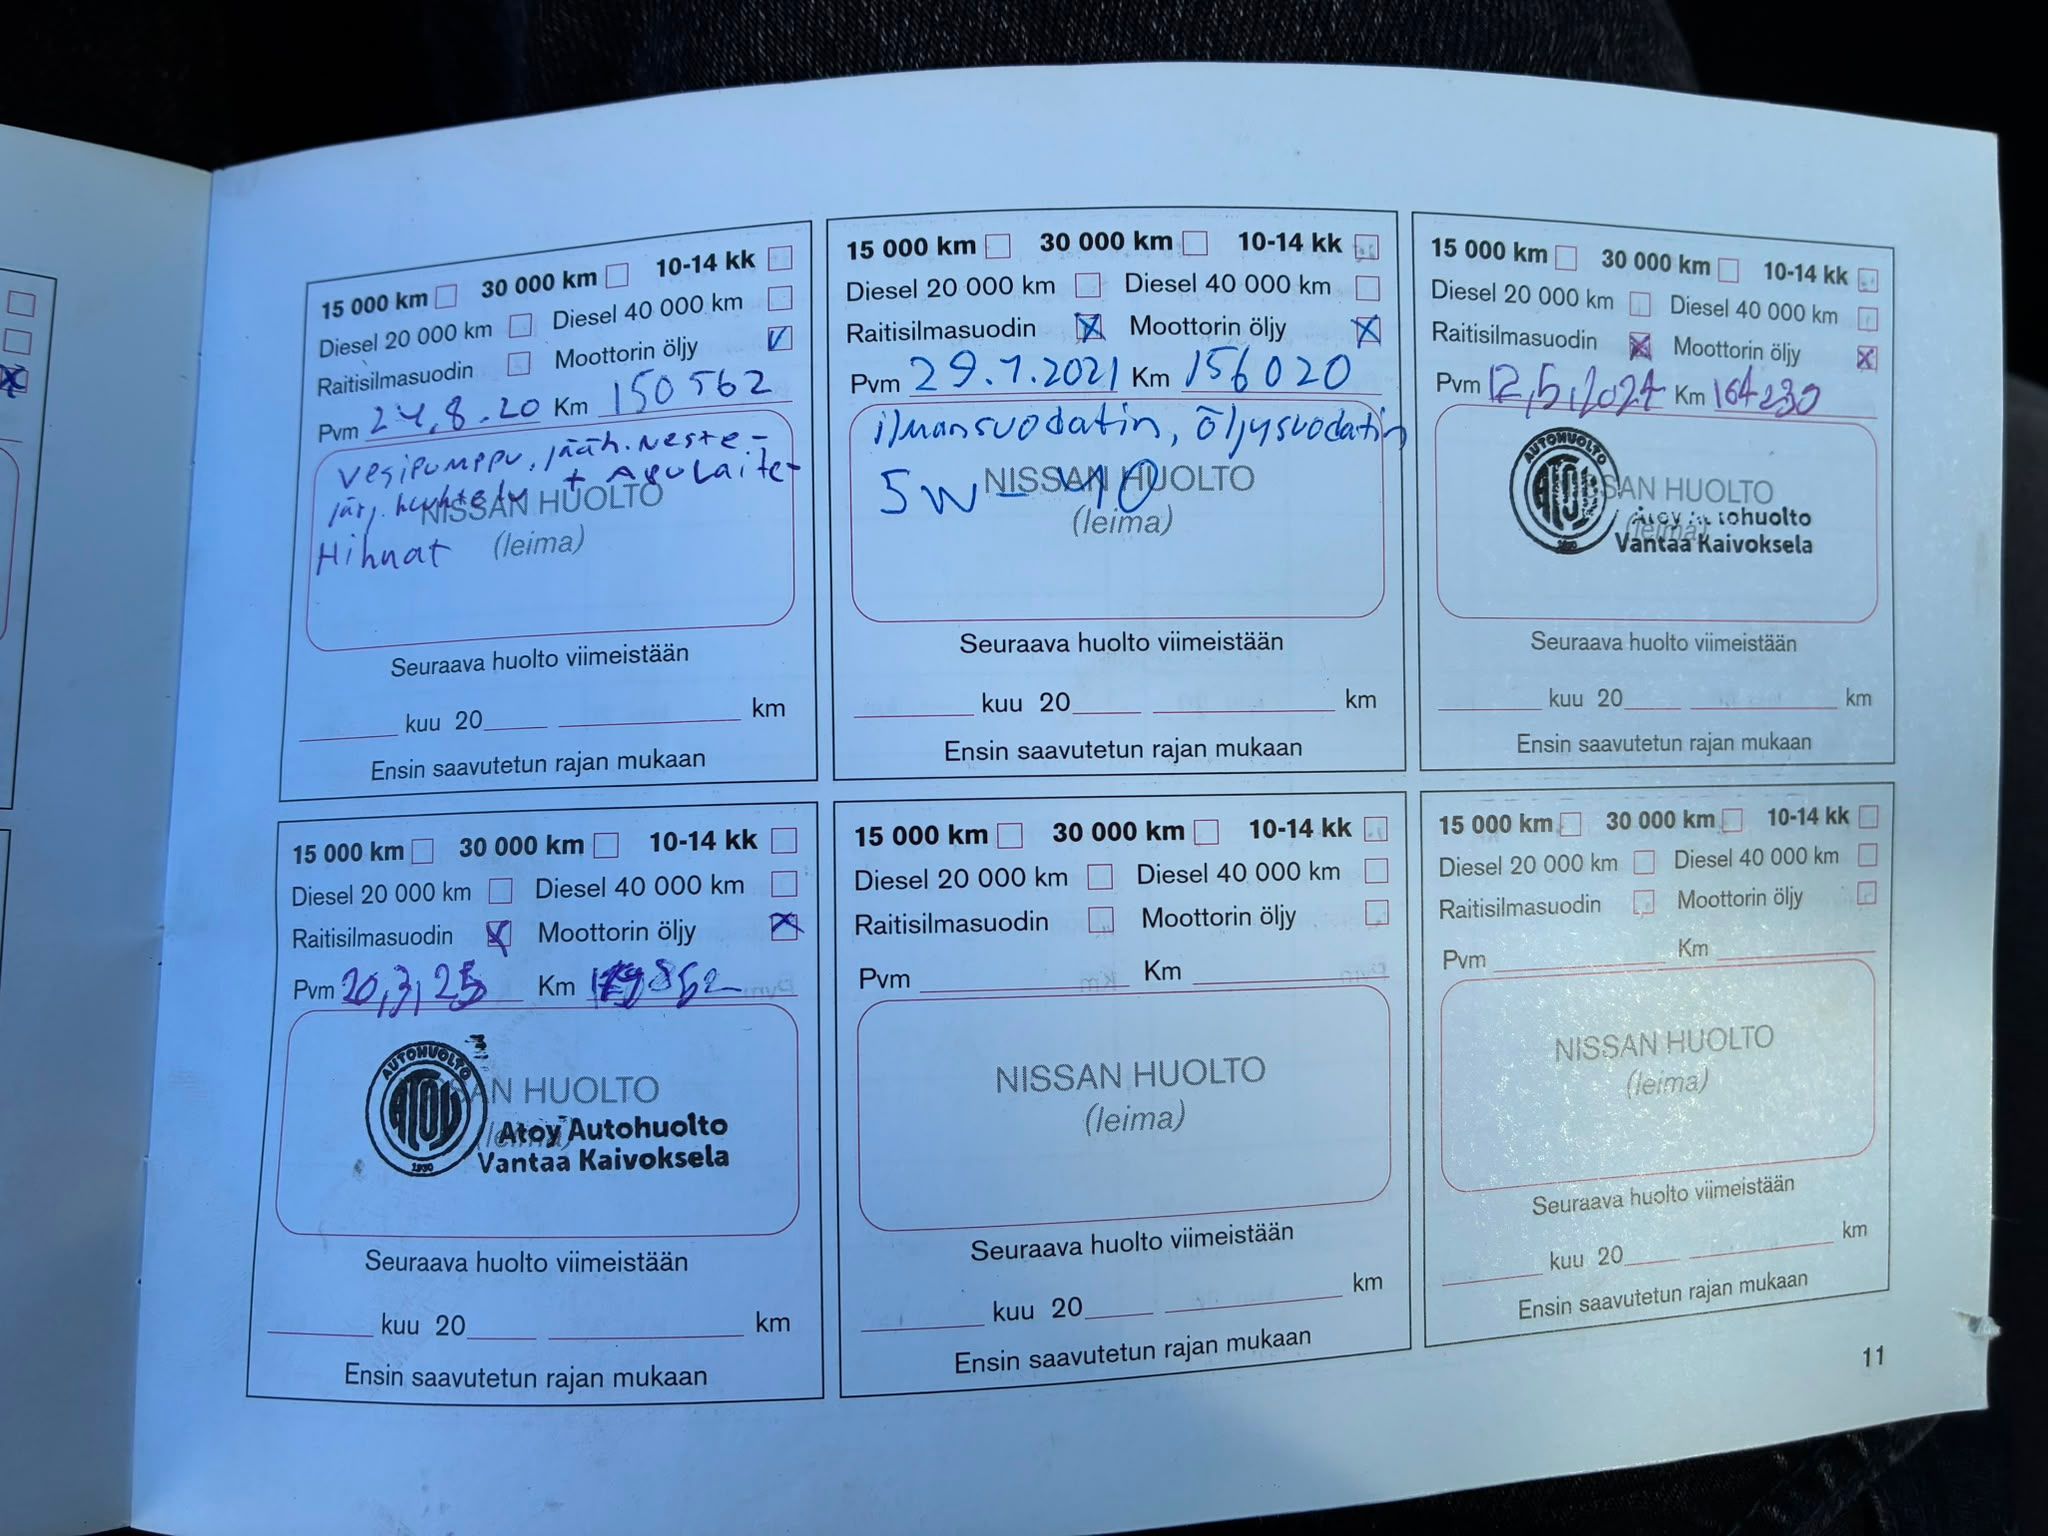 15 000 km 30 000 km 10-14 kk
Diesel 20 000 km Diesel 40 000 km
Raitisilmasuodin Moottorin öljy
Pvm 24.8.20 Km 150 562
Vesipumppu, jääh.neste-
järj. huuhtelu + Apulaite-
Hihnat
NISSAN HUOLTO
(leima)
Seuraava huolto viimeistään
kuu 20 km
Ensin saavutetun rajan mukaan
15 000 km 30 000 km 10-14 kk
Diesel 20 000 km Diesel 40 000 km
Raitisilmasuodin Moottorin öljy
Pvm 29.7.2021 Km 156020
ilmansuodatin, öljysuodatin
5W-40
NISSAN HUOLTO
(leima)
Seuraava huolto viimeistään
kuu 20 km
Ensin saavutetun rajan mukaan
15 000 km 30 000 km 10-14 kk
Diesel 20 000 km Diesel 40 000 km
Raitisilmasuodin Moottorin öljy
Pvm 12,5,2024 Km 164230
AUTOHUOLTO
ATOY
1930
SAN HUOLTO
(leima)
Atoy Autohuolto
Vantaa Kaivoksela
Seuraava huolto viimeistään
kuu 20 km
Ensin saavutetun rajan mukaan
15 000 km 30 000 km 10-14 kk
Diesel 20 000 km Diesel 40 000 km
Raitisilmasuodin Moottorin öljy
Pvm 20,3,25 Km
AUTOHUOLTO
ATOY
1930
SAN HUOLTO
(leima)
Atoy Autohuolto
Vantaa Kaivoksela
Seuraava huolto viimeistään
kuu 20 km
Ensin saavutetun rajan mukaan
15 000 km 30 000 km 10-14 kk
Diesel 20 000 km Diesel 40 000 km
Raitisilmasuodin Moottorin öljy
Pvm Km
NISSAN HUOLTO
(leima)
Seuraava huolto viimeistään
kuu 20 km
Ensin saavutetun rajan mukaan
15 000 km 30 000 km 10-14 kk
Diesel 20 000 km Diesel 40 000 km
Raitisilmasuodin Moottorin öljy
Pvm Km
NISSAN HUOLTO
(leima)
Seuraava huolto viimeistään
kuu 20 km
Ensin saavutetun rajan mukaan
11